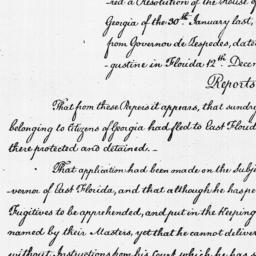 red a Resolution of the House of
Georgia of the 30th. January last,
from Governor de Zespedes, dated
gustine in Florida 12th. Decem
Reports
That from these Papers it appears, that sundry
belonging to Citizens of Georgia had fled to East Florid
there protected and detained. –
That application had been made on the Subj
vernor of East Florida, and that although he has po
Fugitives to be apprehended, and put in the Keeping
named by their Masters, yet that he cannot deliver
without Instructions from his Court which he has s